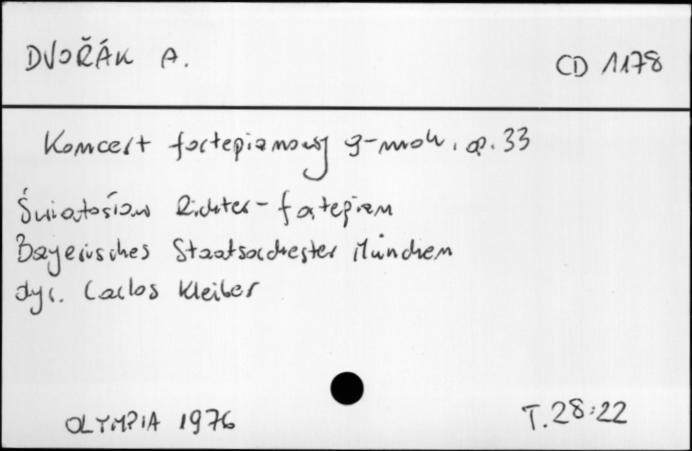 DVOŘÁK A. CD 1178
Koncert fortepianowy g-moll, op. 33
Światosław Richter - fortepian
Bayerisches Staatsorchester München
dyr. Carlos Kleiber
OLYMPIA 1976 T. 28:22